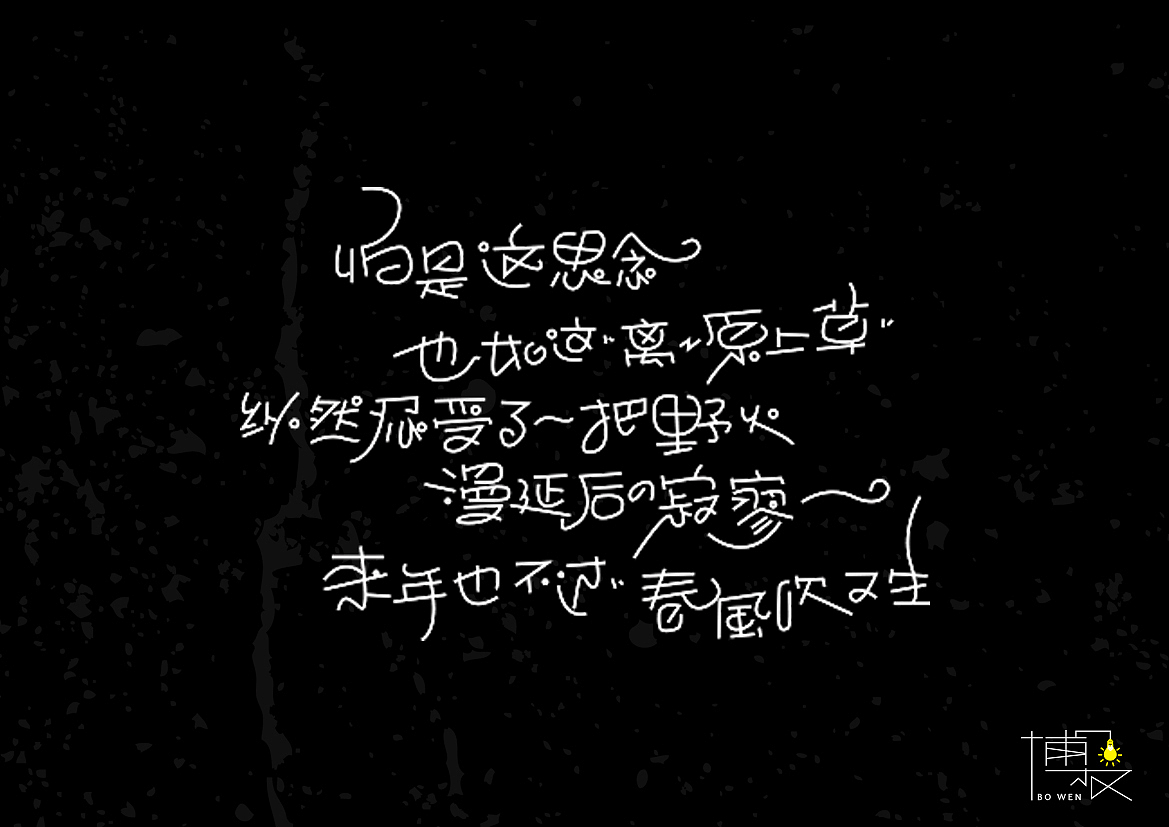 怕是这思念
也如这离~原上草
纵然忍受了一把野火
漫延后の寂寥~
来年也不过春风吹又生
BO WEN